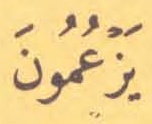 يَزْعُمُونَ